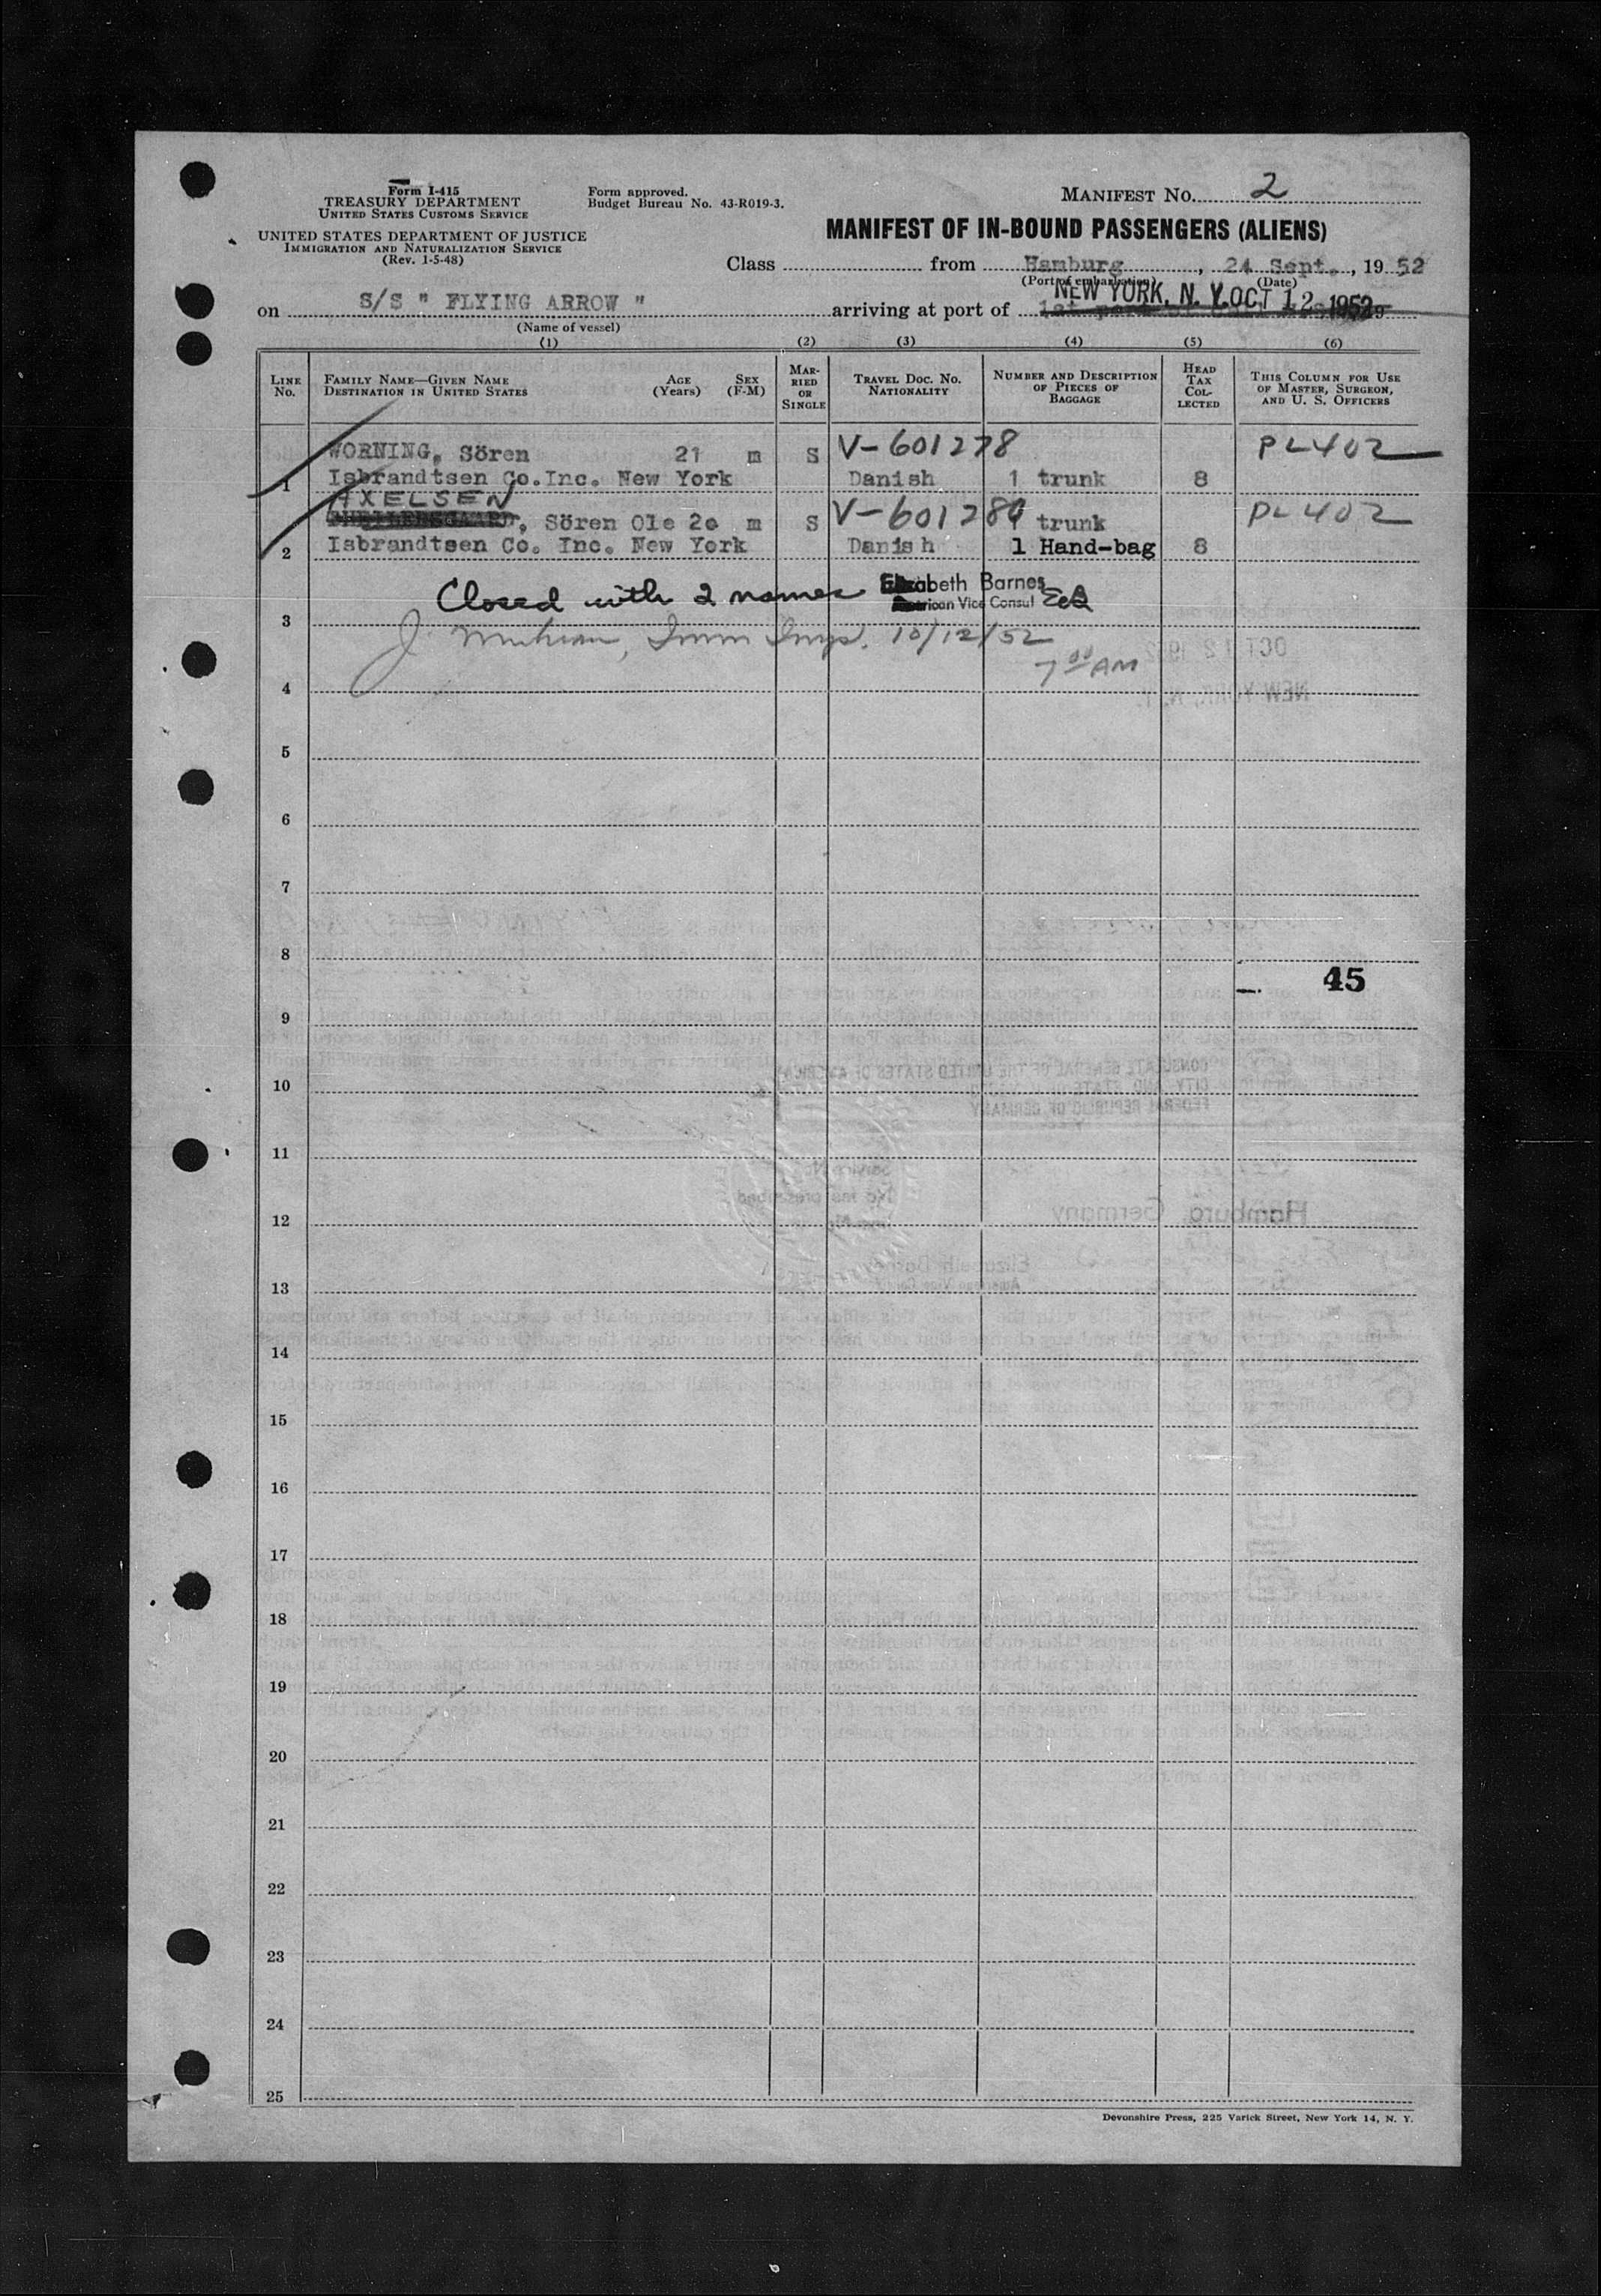 Form I-415
TREASURY DEPARTMENT
UNITED STATES CUSTOMS SERVICE
UNITED STATES DEPARTMENT OF JUSTICE
IMMIGRATION AND NATURALIZATION SERVICE
(Rev. 1-5-48)
Form approved.
Budget Bureau No. 43-R019-3.
MANIFEST No. 2
MANIFEST OF IN-BOUND PASSENGERS (ALIENS)
Class from Hamburg, 24 Sept., 1952
(Port of embarkation) (Date)
on S/S " FLYING ARROW " arriving at port of NEW YORK, N. Y. OCT 12 1952
(Name of vessel)
(1) (2) (3) (4) (5) (6)
LINE No. FAMILY NAME—GIVEN NAME DESTINATION IN UNITED STATES AGE (Years) SEX (F-M) MARRIED OR SINGLE TRAVEL DOC. No. NATIONALITY NUMBER AND DESCRIPTION OF PIECES OF BAGGAGE HEAD TAX COLLECTED THIS COLUMN FOR USE OF MASTER, SURGEON, AND U. S. OFFICERS
WORNING, Sören 21 m S V-601278 PL402
1 Isbrandtsen Co.Inc. New York Danish 1 trunk 8
AXELSEN
, Sören Ole 2o m S V-601280 trunk PL402
2 Isbrandtsen Co. Inc. New York Danish 1 Hand-bag 8
Closed with 2 names Elizabeth Barnes
American Vice Consul
3
J. Imm Insp. 10/12/52
7 00 AM
4
5
6
7
8
45
9
10
11
12
13
14
15
16
17
18
19
20
21
22
23
24
25
Devonshire Press, 225 Varick Street, New York 14, N. Y.